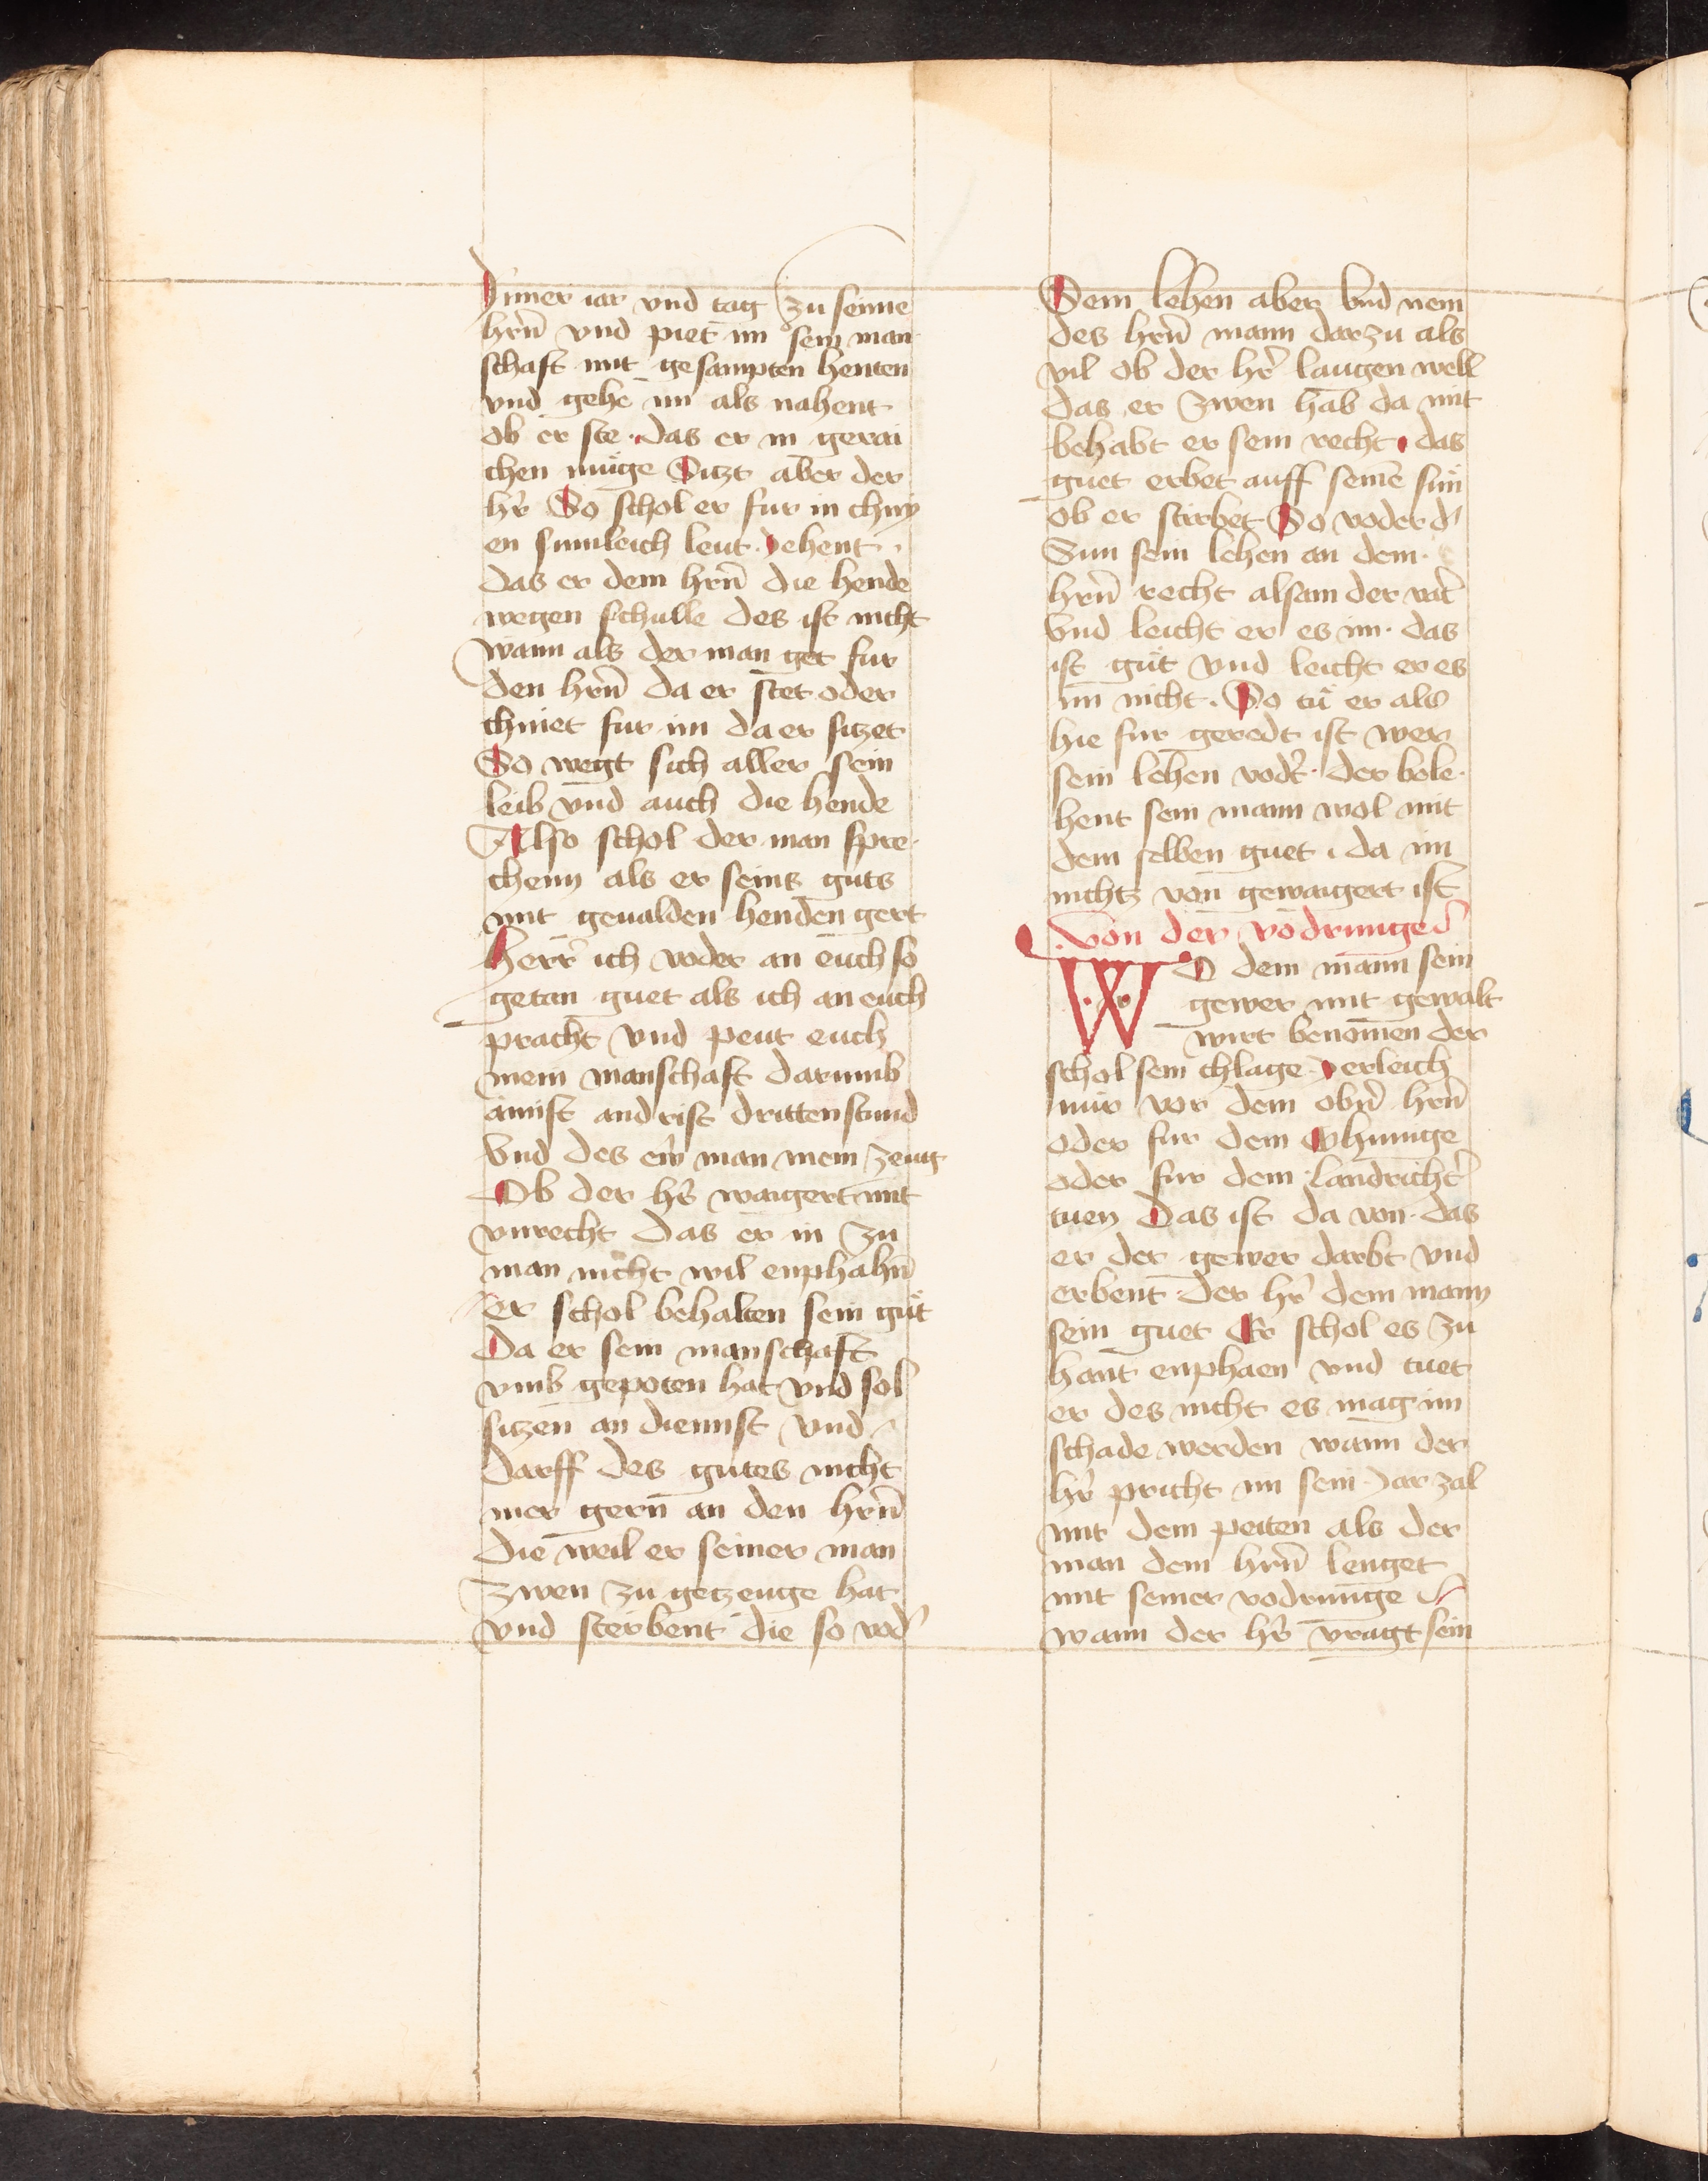 Inner iar vnd tag zu seinē
hrn̄ vnd piet im sein man
schaft mit gesampten henten
vnd gehe im als nahent
ob er ste · das er in gerai
chen muge Sitzt aber der
hr̄ So schol er fur in chny
en sumleich leut · Jehent ·
das er dem hrn̄ die hende
wegen schulle des ist nicht
wann als der man get fur
den hrn̄ da er stet oder
chniet fur im da er sitzet
So wegt sich aller sein
leib vnd auch die hende
Also schol der man spre
chenn als er seins guts
mit geualden henden gert
Herr̄ ich voder an euch so
getan guet als ich an euch
pracht vnd peut euch
mein manschaft darumb
ainist andrist dritten stund
Vnd des ew̄ man mein zeug
Ob der hr̄ waigert mit
vnrecht das er in zu
man nicht wil enphahn̄
er schol behalten sein gut
Da er sein manschaft
vmb gepoten hat vnd sol
sitzen an dienst vnd
darff des gutes nicht
mer gern an den hrn̄
die weil er seiner man
zwen zu getzeuge hat
vnd sterbent die so vod̄
Sein lehen aber vnd nem
des hrn̄ mann darzu als
vil ob der hr̄ laugen well
das er zwen hab da mit
behabt er sein recht · das
guet erbet auff seinē sun
ob er stirbet So voder d̄
Sun sein lehen an dem ·
hrn̄ recht alsam der vat̄
Vnd leicht er es im · das
ist gut vnd leicht er es
im nicht · So tu er als
hie fur geredt ist wer
sein lehen vod̄t · der bele
hent sein mann wol mit
dem selben guet · da im
nichtz von gewaigert ist
Von der vodrunge
WO dem mann sein
gewer mit gewalt
wirt benomen der
schol sein chlage Jerleich
nur vor dem obn̄ hrn̄
oder fur dem Chunige
oder fur dem landricht̄
tuen Das ist da von · das
er der gewer darbt vnd
erbent der hr̄ dem mann
sein guet Er schol es zu
hant enphaen vnd tuet
er des nicht es mag im
schade werden wann der
hr̄ pricht im sein Jarzal
mit dem peiten als der
man dem hrn̄ lenget
mit seiner vodrunge
wann der hr̄ vragt sein